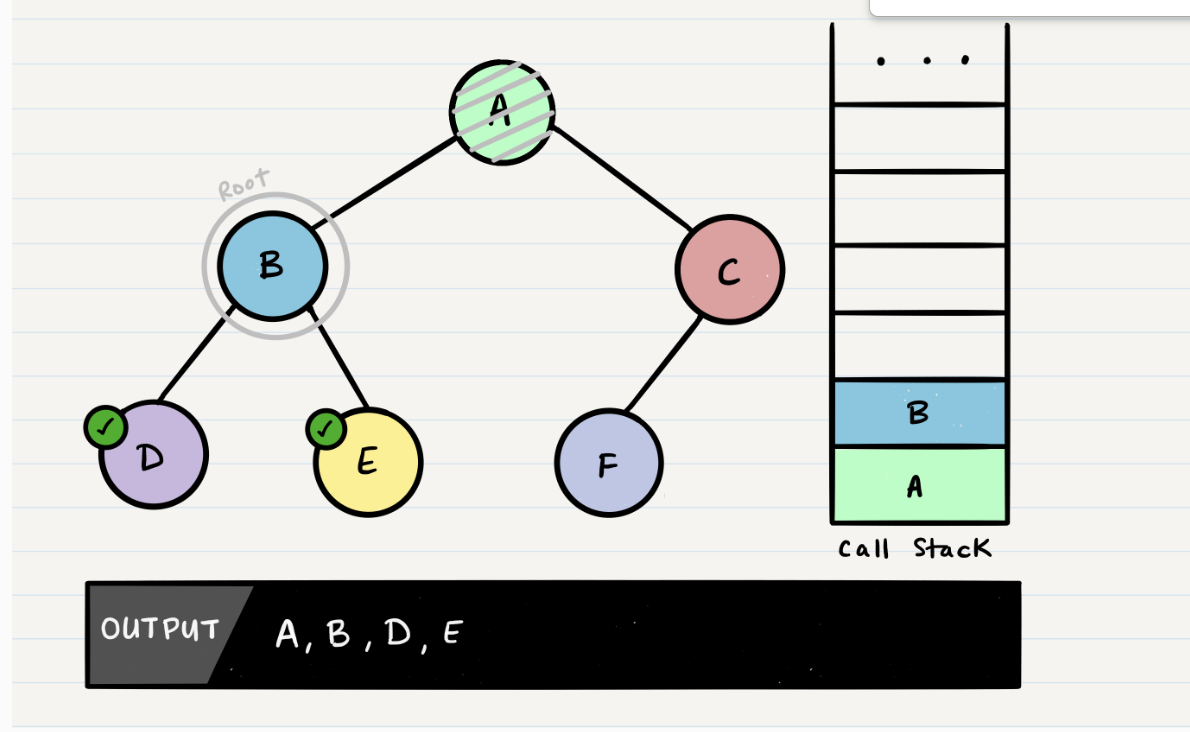 A
Root
B
C
D
E
F
. . .
B
A
Call Stack
OUTPUT A, B, D, E